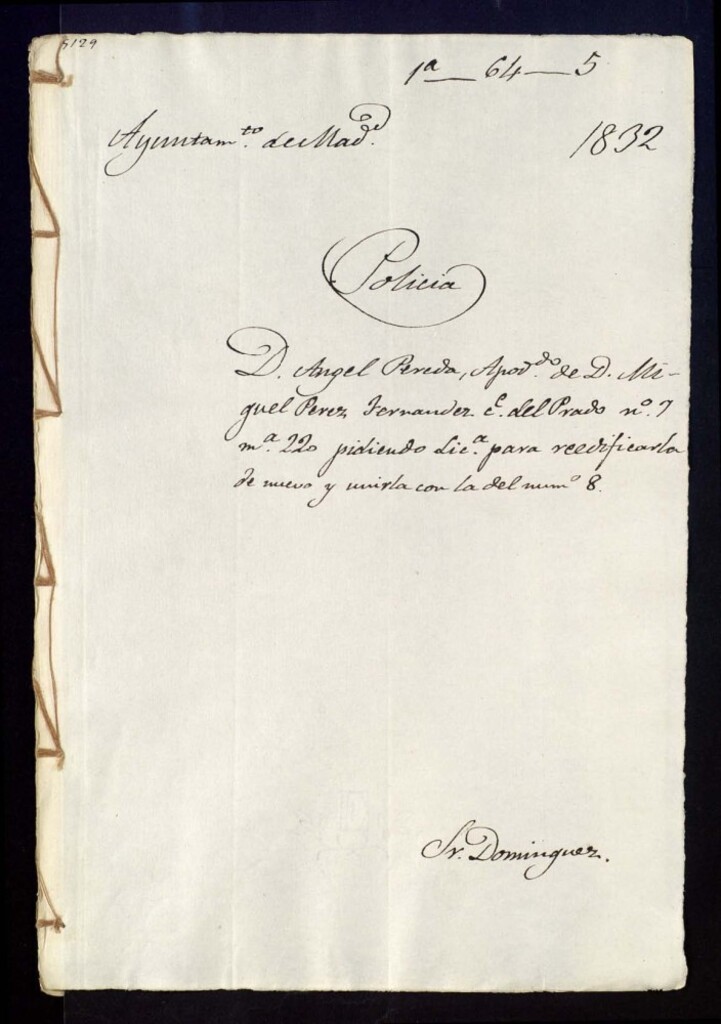 5129
1ª — 64 — 5
Ayuntam.to de Mad.d
1832
Policia
D. Angel Pereda, Apod.do de D. Mi-
guel Perez Fernandez c.e del Prado nº. 7
mª. 220 pidiendo Lic.ª para reedificarla
de nuevo y unirla con la del numº 8.
Sr. Dominguez.